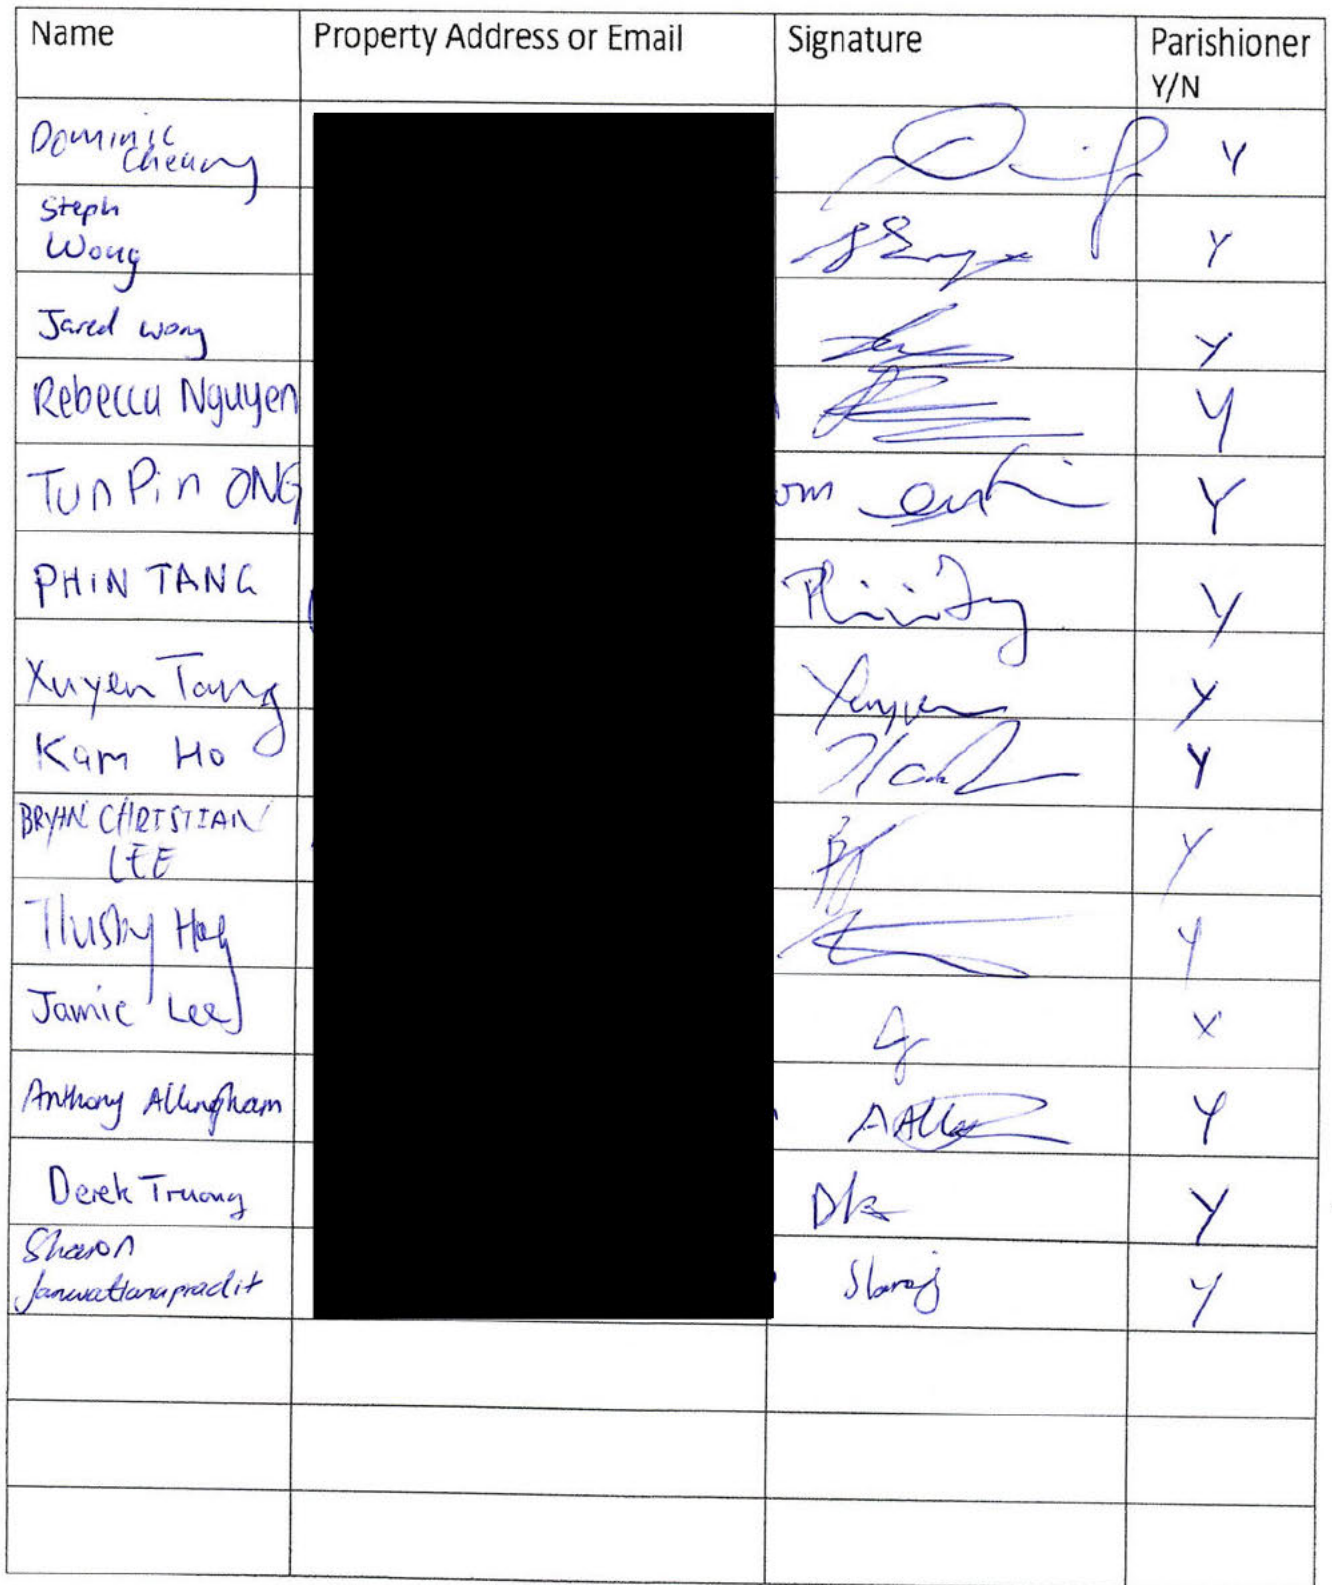 Name Property Address or Email Signature Parishioner
Y/N
Dominic
Cheung Y
Steph
Wong Y
Jared Wong Y
Rebecca Nguyen Y
Tun Pin ONG om Y
PHIN TANG Y
Xuyen Tang Y
Kam Ho Y
BRYAN CHRISTIAN
LEE Y
Y
Jamie Lee X
Anthony Allingham Y
Derek Truong Y
Sharon
Janwattanapradit Y